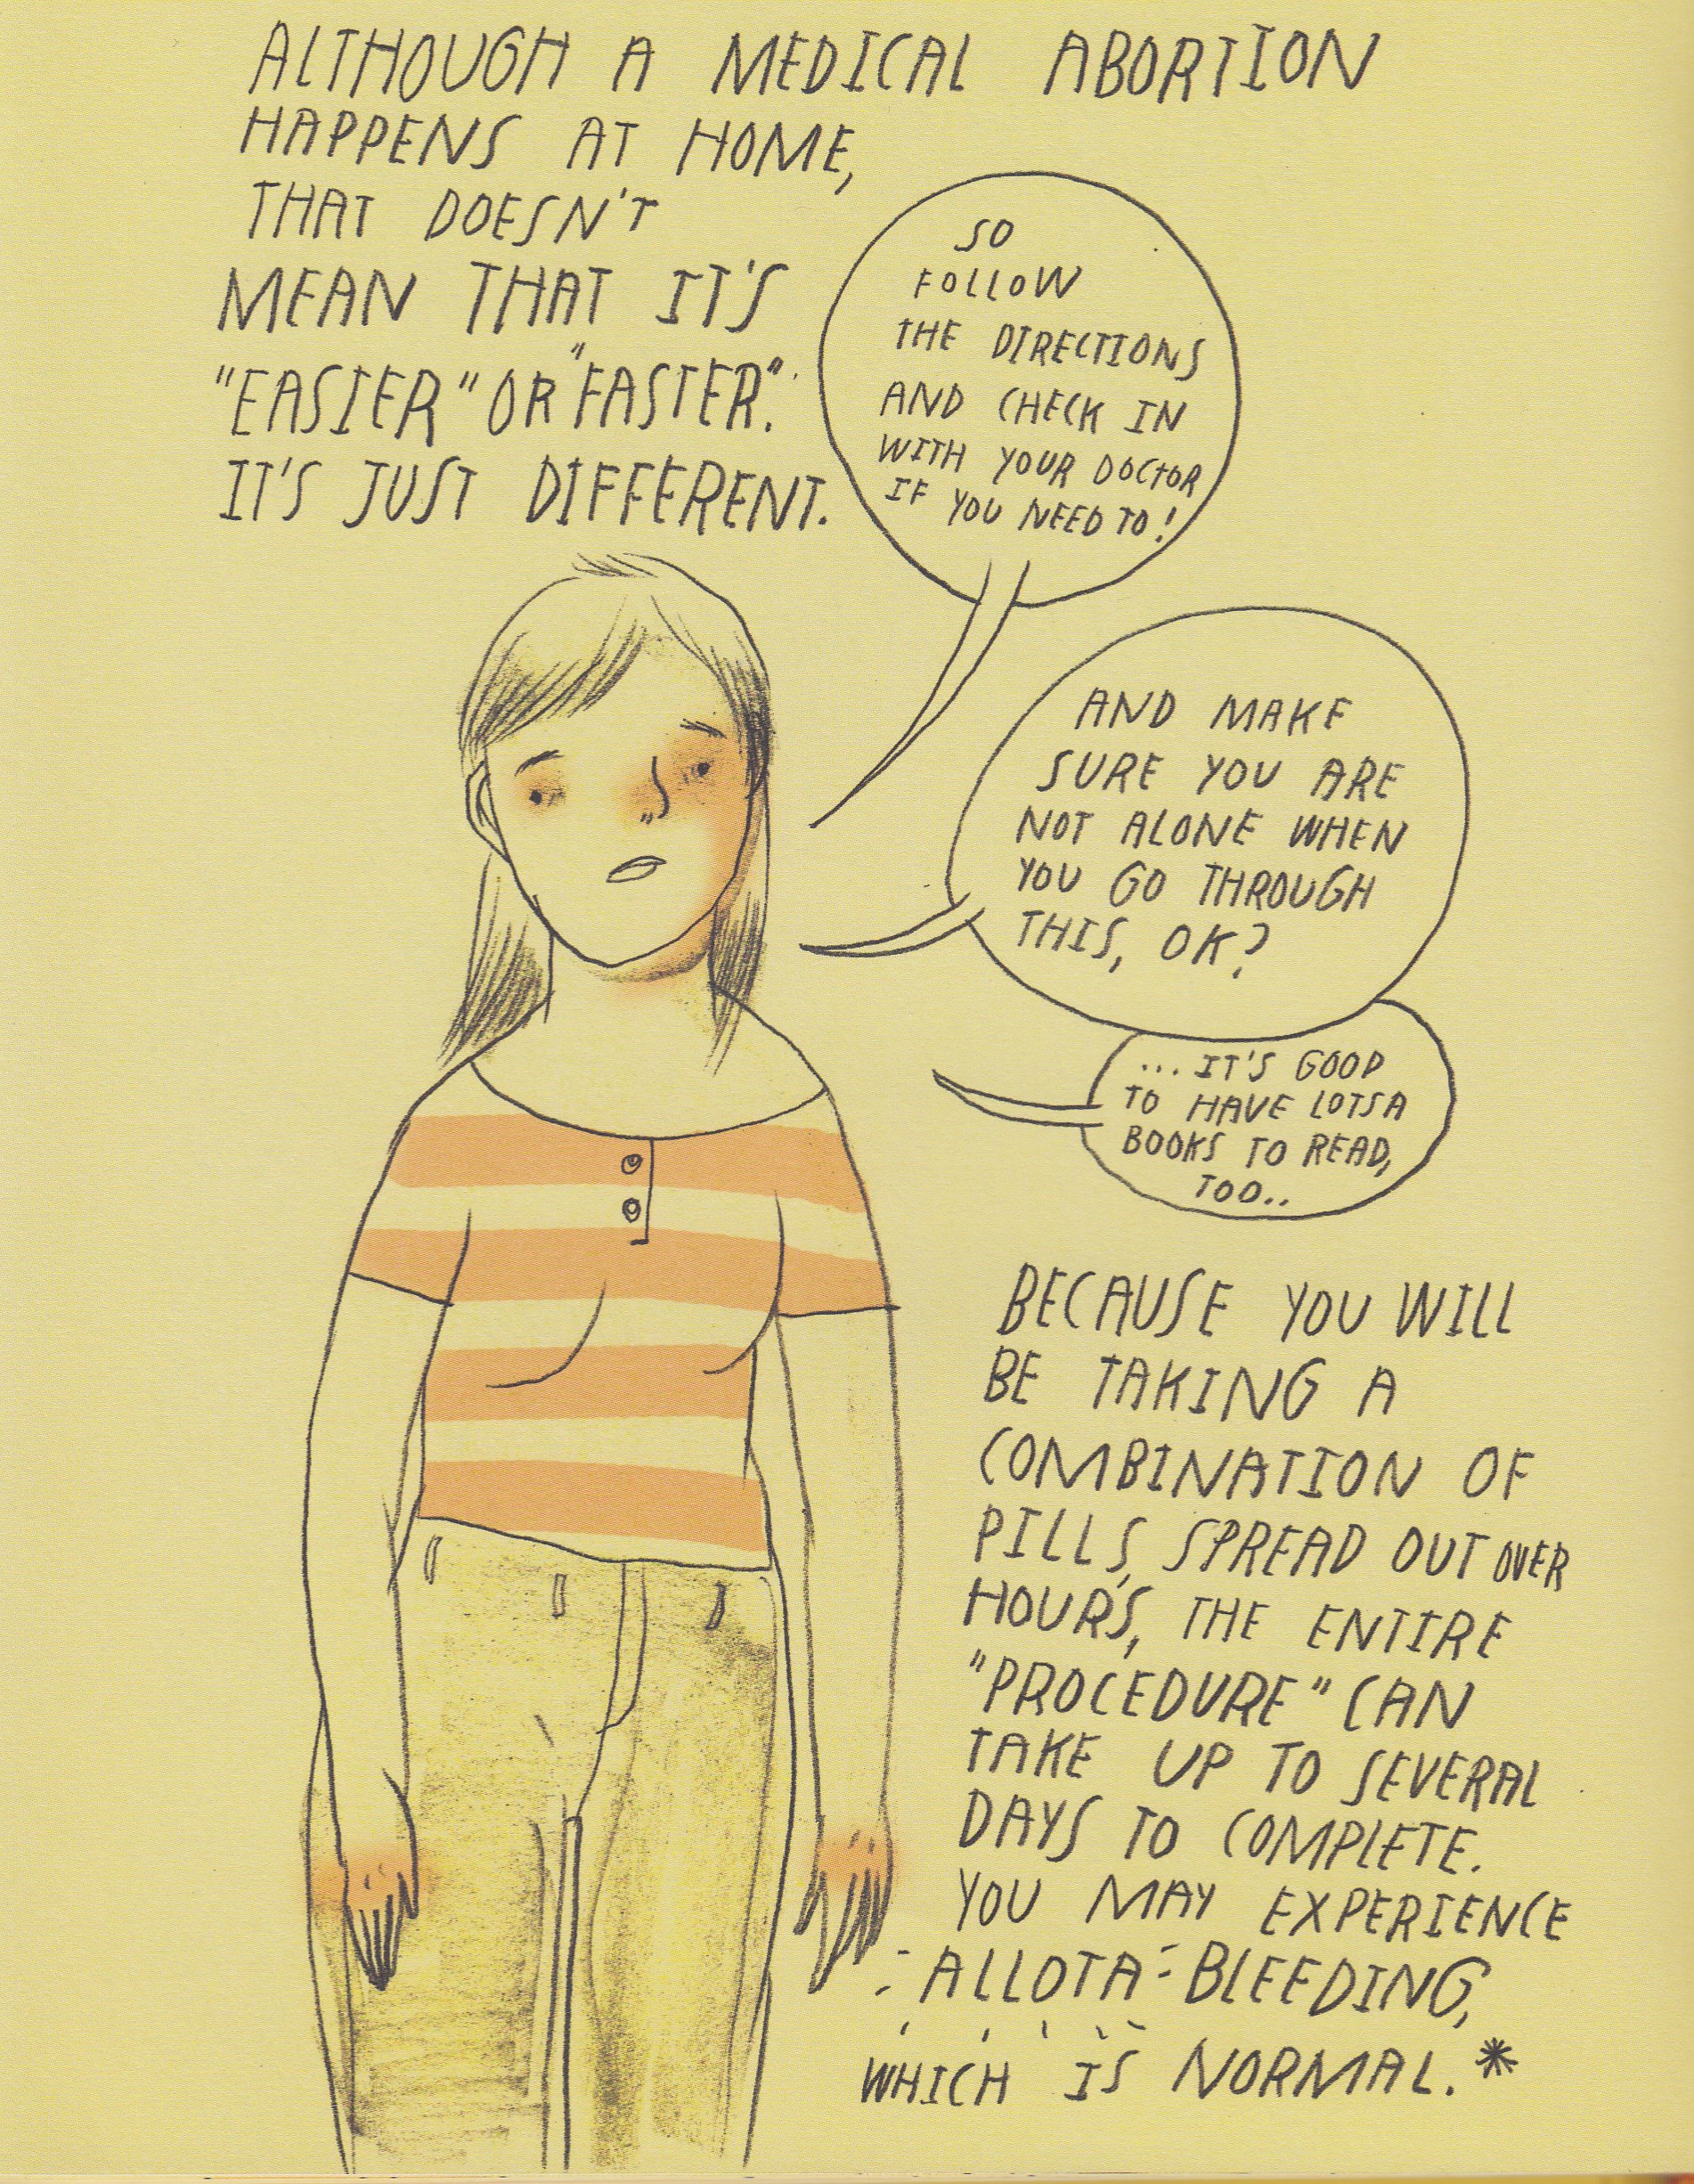 ALTHOUGH A MEDICAL ABORTION
HAPPENS AT HOME,
THAT DOESN'T
MEAN THAT IT'S
"EASIER" OR "FASTER".
IT'S JUST DIFFERENT.
SO
FOLLOW
THE DIRECTIONS
AND CHECK IN
WITH YOUR DOCTOR
IF YOU NEED TO!
AND MAKE
SURE YOU ARE
NOT ALONE WHEN
YOU GO THROUGH
THIS, OK?
...IT'S GOOD
TO HAVE LOTSA
BOOKS TO READ,
TOO..
BECAUSE YOU WILL
BE TAKING A
COMBINATION OF
PILLS, SPREAD OUT OVER
HOURS, THE ENTIRE
"PROCEDURE" CAN
TAKE UP TO SEVERAL
DAYS TO COMPLETE.
YOU MAY EXPERIENCE
ALLOTA BLEEDING,
WHICH IS NORMAL.*